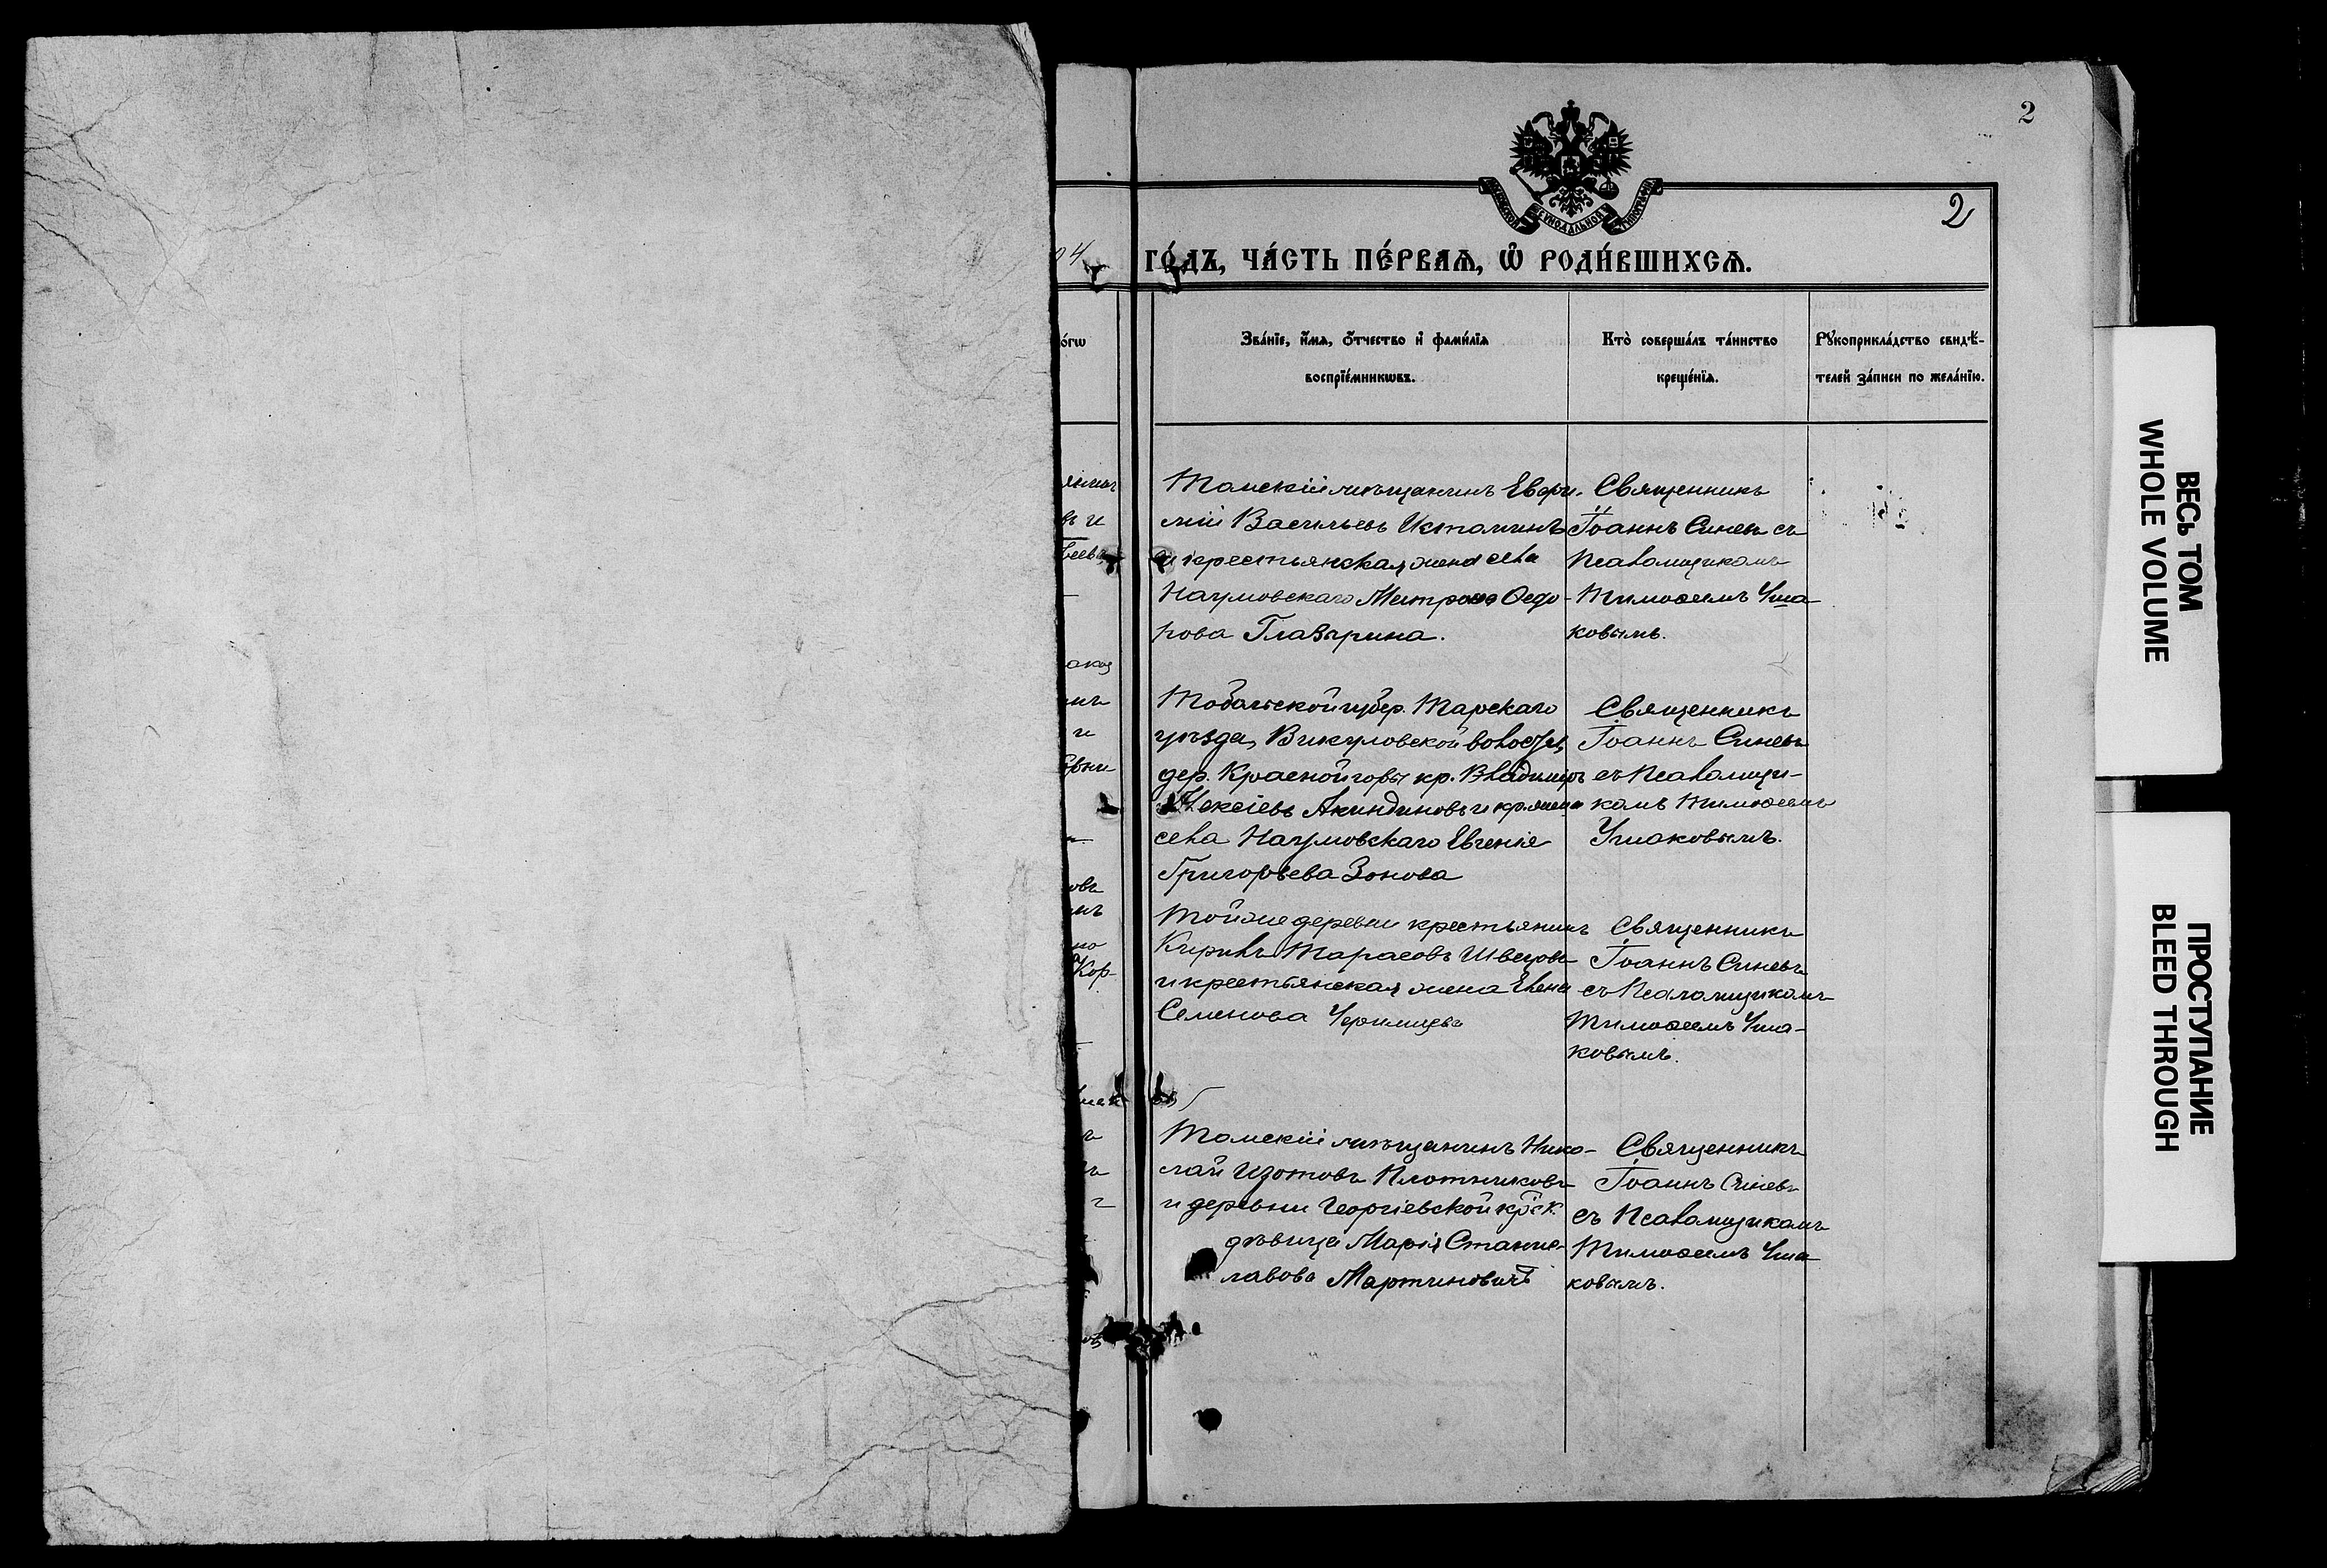 2
2
04 го́дъ, ча́сть пе́рваѧ, ѡ҆ роди́вшихсѧ.
Зва́нїе, и҆́мѧ, ѻ҆́тчество и҆ фами́лїа
воспрїе́мникѡвъ.
Кто̀ соверша́лъ та́инство
креще́нїѧ.
Рꙋкоприкла́дство свидѣ́-
телей за́писи по жела́нїю.
Томскій мѣщанинъ Евфи-
мій Васильевъ Истоминъ
и крестьянская жена села
Наумовскаго Матрона Ѳедо-
рова Глазырина.
Священникъ
Іоаннъ Синевъ съ
Псаломщикомъ
Тимоѳеемъ Уша-
ковымъ.
Тобольской губер. Тарскаго
уѣзда, Викуловской волости,
дер. Красной горы кр. Владиміръ
Алексіевъ Акиндиновъ и кр. жена
села Наумовскаго Евгенія
Григорьева Зонова
Священникъ
Іоаннъ Синевъ
съ Псаломщи-
комъ Тимоѳеемъ
Ушаковымъ.
Той же деревни крестьянинъ
Кирилъ Тарасовъ Швецовъ
и крестьянская жена Елена
Семенова
Священникъ
Іоаннъ Синевъ
съ Псаломщикомъ
Тимоѳеемъ Уша-
ковымъ.
Томскій мѣщанинъ Нико-
лай Изотовъ Плотниковъ
и деревни Георгіевской крск.
дѣвица Марія Станис-
лавова Мартиновичъ
Священникъ
Іоаннъ Синевъ
съ Псаломщикомъ
Тимоѳеемъ Уша
ковымъ.
ВЕСЬ ТОМ
WHOLE VOLUME
ПРОСТУПАНИЕ
BLEED THROUGH